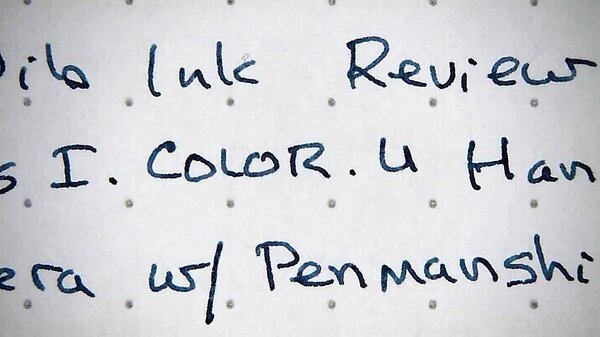 ilo Ink Review
s I. COLOR. U Han
era w/ Penmanshi